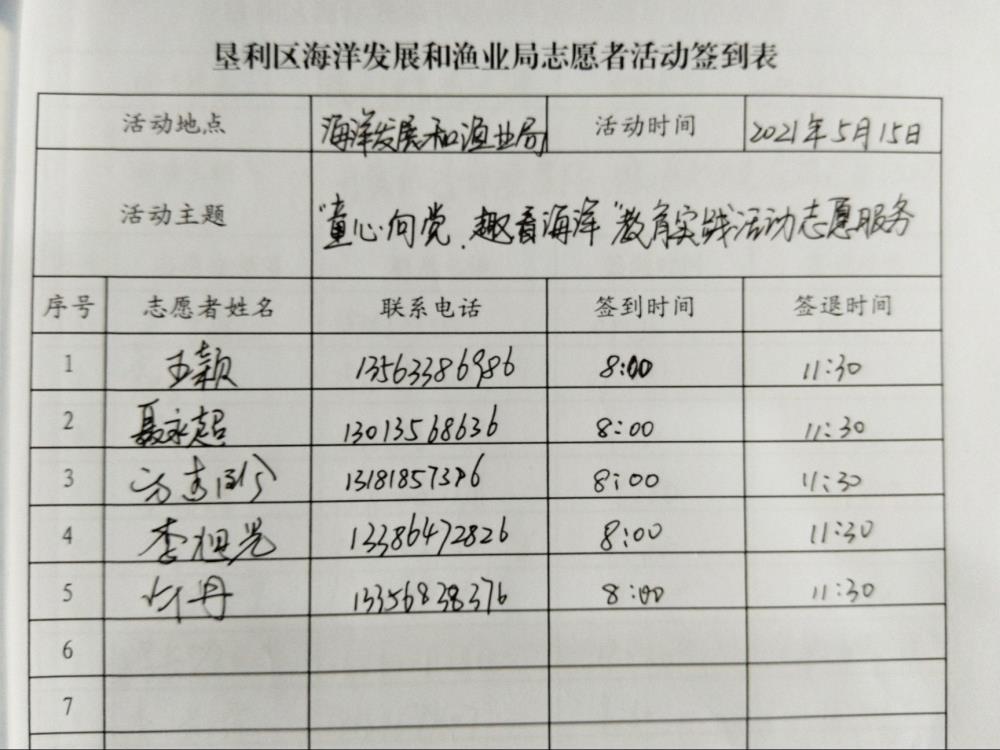 垦利区海洋发展和渔业局志愿者活动签到表
活动地点 海洋发展和渔业局 活动时间 2021年5月15日
活动主题 "童心向党、趣看海洋"教育实践活动志愿服务
序号 志愿者姓名 联系电话 签到时间 签退时间
1 王颖 13563386986 8:00 11:30
2 聂永超 13013568636 8:00 11:30
3 8:00 11:30
4 李旭光 13386472826 8:00 11:30
5 13356838376 8:00 11:30
6
7